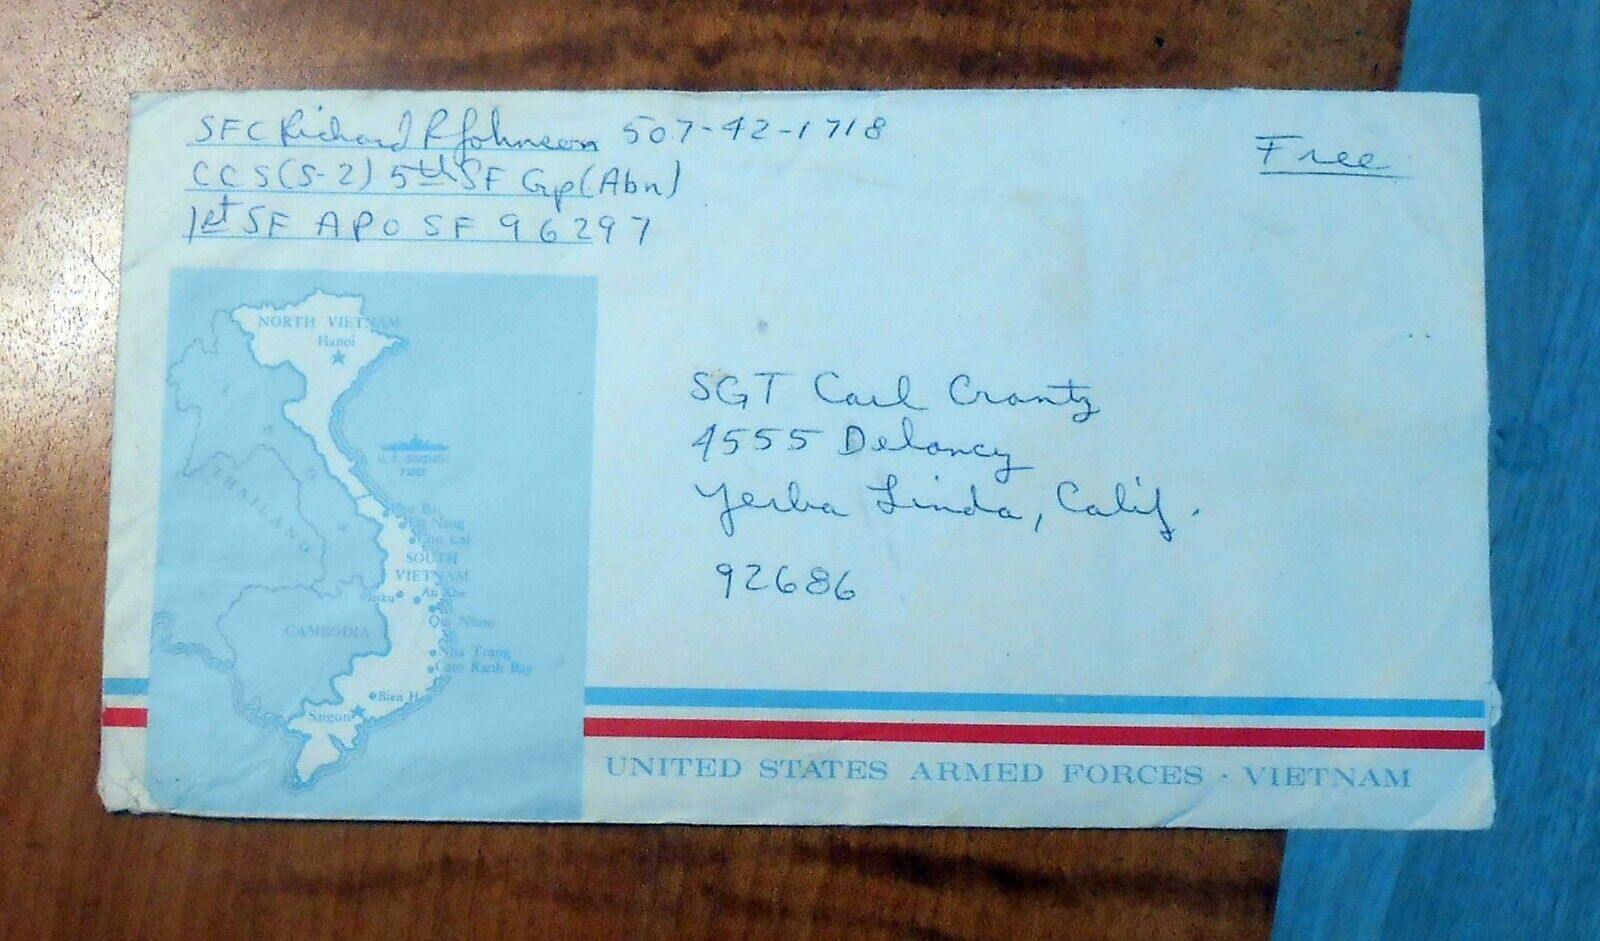 SFC Richard R Johnson 507-42-1718
CCS (S-2) 5th SF Gp (Abn)
1st SF APO SF 96297
Free
SGT Carl Crantz
4555 Delancy
Yerba Linda, Calif.
92686
NORTH VIETNAM
Hanoi
U.S. SEVENTH
FLEET
THAILAND
Phu Bai
Da Nang
Chu Lai
SOUTH
VIETNAM
Pleiku
An Khe
Qui Nhon
CAMBODIA
Nha Trang
Cam Ranh Bay
Bien Hoa
Saigon
UNITED STATES ARMED FORCES · VIETNAM